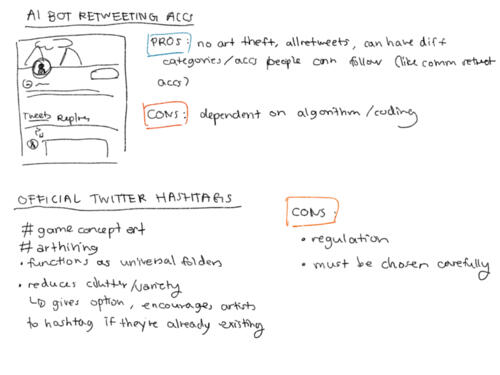 AI BOT RETWEETING ACCS
PROS: no art theft, all retweets, can have diff
categories/accs people can follow (like comm retweet
accs?)
Tweets Replies
CONS: dependent on algorithm/coding
OFFICIAL TWITTER HASHTAGS
# game concept art
# arthiring
• functions as universal folders
• reduces clutter/variety
↳ gives option, encourages artists
to hashtag if they're already existing
CONS:
• regulation
• must be chosen carefully